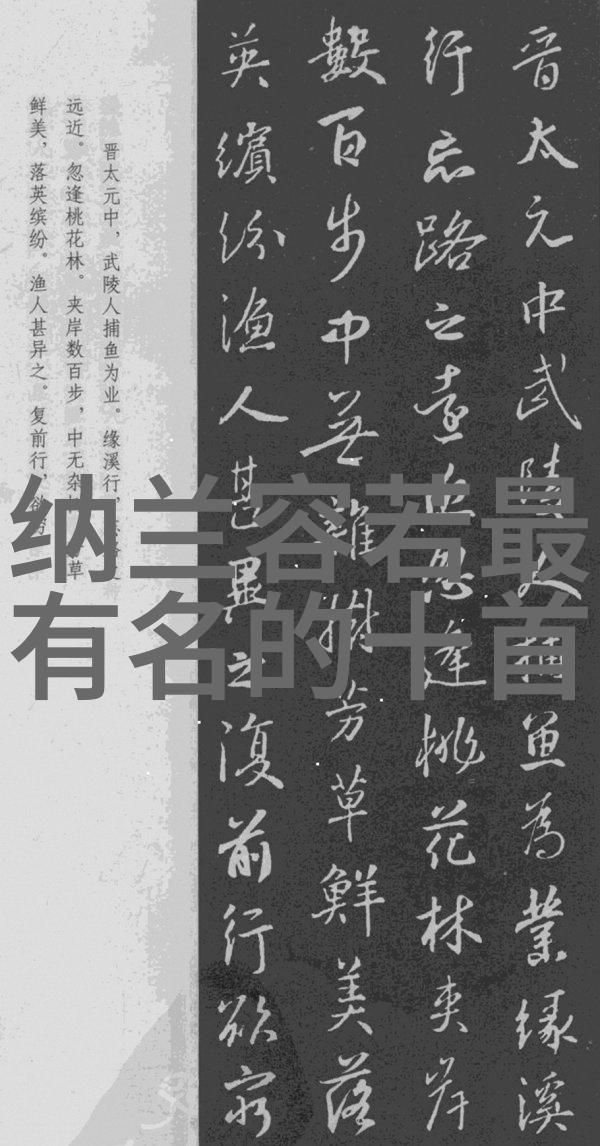 纳兰容若最
有名的十首
晋太元中武陵人捕鱼为業缘溪
行忘路之遠近忽逢桃花林夹岸
數百步中無雜樹芳草鮮美落
英繽纷渔人甚異之復前行欲穷
晋太元中，武陵人捕鱼为业。缘溪行，
远近。忽逢桃花林。夹岸数百步，中无杂 草
鲜美，落英缤纷。渔人甚异之。复前行，欲